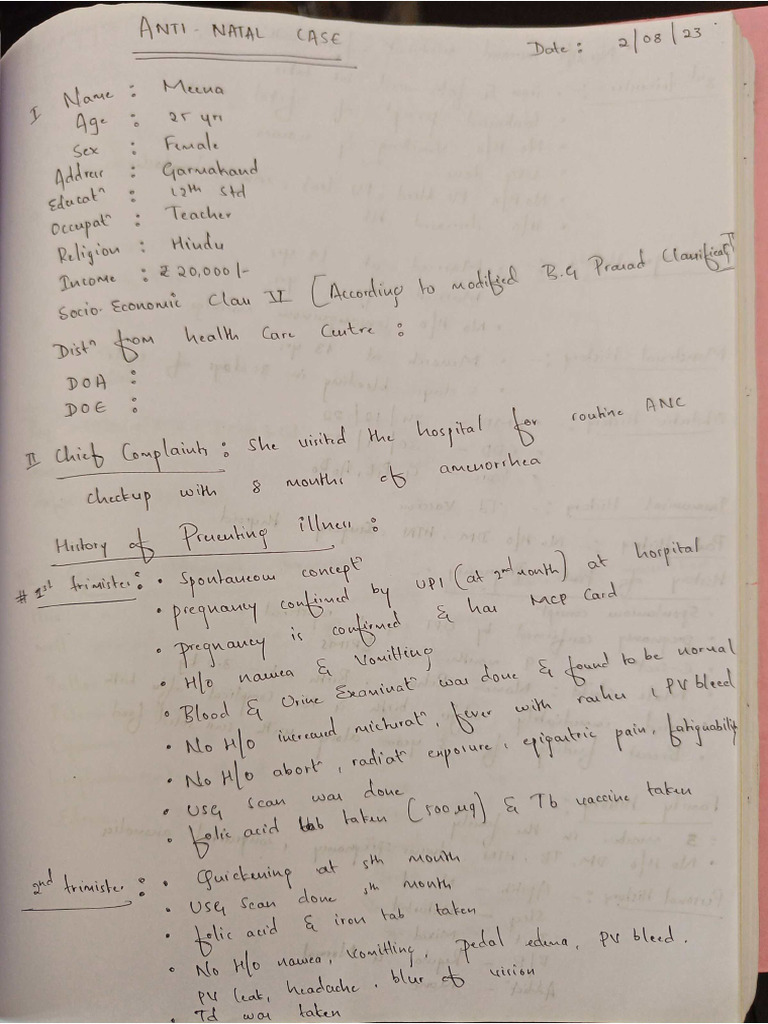 ANTI-NATAL CASE
Date: 2/08/23
I Name : Meena
Age : 25 yrs
Sex : Female
Address : Garmahand
Educatn : 12th Std
Occupatn : Teacher
Religion : Hindu
Income : ₹ 20,000/-
Socio-Economic Class VI [According to modified B.G Prasad Classificatn]
Distn from health Care Centre :
DOA :
DOE :
II Chief Complaints : She visited the hospital for routine ANC
checkup with 8 months of amenorrhea
History of Presenting illness :
# 1st trimister : • Spontaneous conceptn
• pregnancy confirmed by UPI (at 2nd month) at hospital
• pregnancy is confirmed & has MCP Card
• H/o nausea & Vomitting
• Blood & Urine Examinatn was done & found to be normal
• No H/o increased micturatn, fever with rashes, PV bleed
• No H/o abortn, radiatn exposure, epigastric pain, fatiguability
• USG scan was done
• folic acid tab taken (500 µg) & Tb vaccine taken
2nd trimister : • Quickening at 5th month
• USG scan done 5th month
• folic acid & iron tab taken
• No H/o nausea, vomitting, pedal edema, PV bleed,
PV leak, headache, blur of vision
• Td was taken